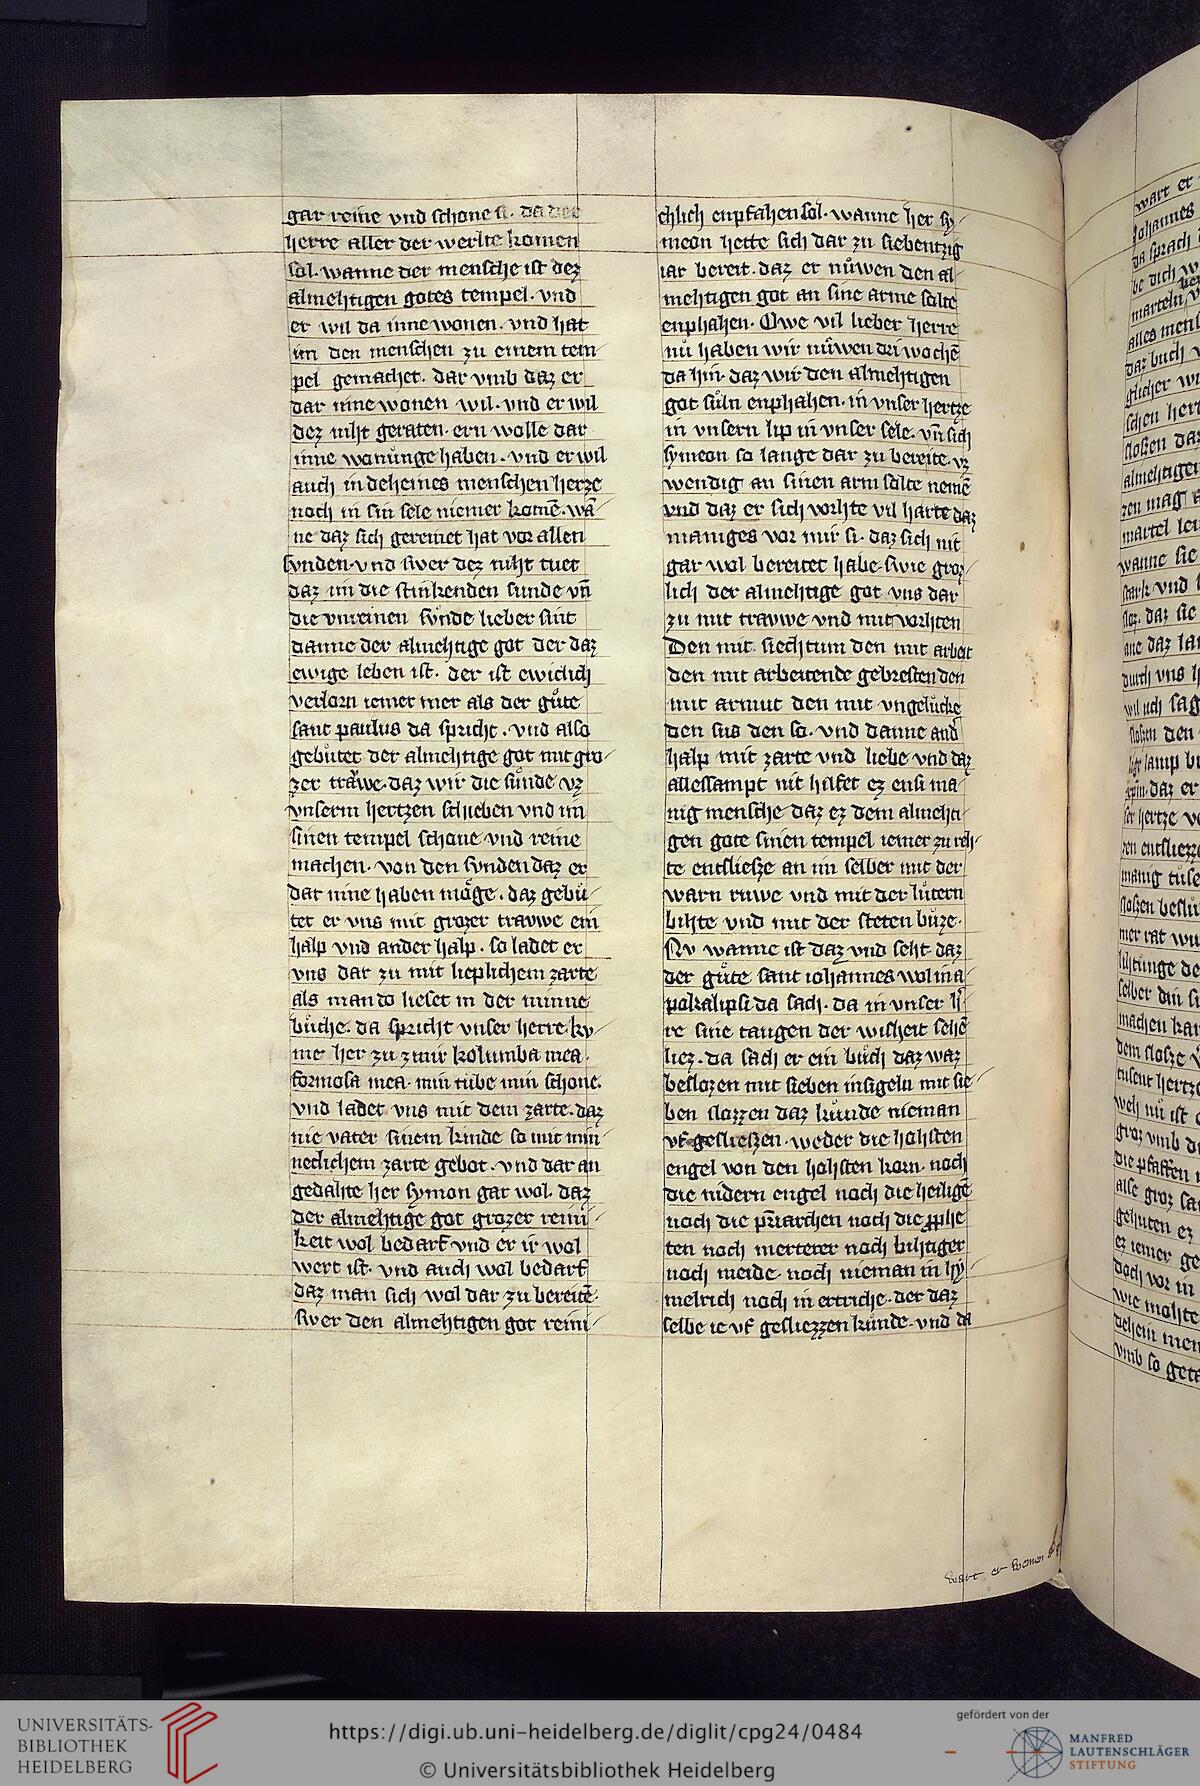 gar reine vnd schone si. da der
herre aller der werlte komen
sol. wanne der mensche ist dez
almehtigen gotes tempel. vnd
er wil da inne wonen. vnd hat
im den menschen zu einem tem-
pel gemachet. dar vmb daz er
dar inne wonen wil. vnd er wil
dez niht geraten. ern wolle dar
inne wonůnge haben. vnd er wil
auch in deheines menschen herze
noch in sin sele niemer komē. wā-
ne daz sich gereinet hat vor allen
svnden. vnd swer dez niht tuet
daz im die stinkenden sunde vn̄
die vnreinen sv̊nde lieber sint
danne der almehtige got der daz
ewige leben ist. der ist ewiclich
verlorn iemer mer als der gůte
sant paulus da spricht. vnd also
gebůtet der almehtige got mit gro-
zer trawe. daz wir die sůnde vz
vnserm hertzen schieben vnd im
sinen tempel schone vnd reine
machen. von den svnden daz er
dar inne haben můge. daz gebů-
tet er vns mit grozer trauwe ein
halp vnd ander halp. so ladet er
vns dar zu mit lieplichem zarte
als man do lieset in der minne
bůche. da spricht vnser herre. ku-
me her zu z mir kolumba mea.
formosa mea. min tube min schone.
vnd ladet vns mit dem zarte. daz
nie vater sinem kinde so mit min-
neclichem zarte gebot. vnd dar an
gedahte her symon gar wol. daz
der almehtige got grozer reini-
keit wol bedarf vnd er ir wol
wert ist. vnd auch wol bedarf
daz man sich wol dar zu bereitē.
Swer den almehtigen got reini-
chlich enpfahen sol. wanne her sy-
meon hette sich dar zu siebentzig
iar bereit. daz er nůwen den al-
mehtigen got an sine arme solte
enphahen. Owe vil lieber herre
nů haben wir nůwen dri wochē
da hin. daz wir den almehtigen
got sůln enphahen. in vnser hertze
in vnsern lip in vnser sele. vn̄ sich
symeon so lange dar zu bereite. vz
wendig an sinen arm solte nemē
vnd daz er sich vorhte vil harte daz
maniges vor mir si. daz sich nit
gar wol bereitet habe. swie groz-
lich der almehtige got vns dar
zu mit trauwe vnd mit vorhten
Den mit siechtum den mit arbeit
den mit arbeitende gebresten den
mit armut den mit vngelůcke
den sus den so. vnd danne and
halp mit zarte vnd liebe vnd daz
allessampt nit hilfet ez ensi ma
nig mensche daz ez dem almehti-
gen gote sinen tempel iemer zu reh-
te entsliesze an im selber mit der
warn ruwe vnd mit der lůtern
bihte vnd mit der steten bůze.
Nv wanne ist daz vnd seht daz
der gůte sant iohannes wol in a-
pokalipsi da sach. da in vnser h̄-
re sine taugen der wisheit sehē
liez. da sach er ein bůch daz waz
beslozen mit sieben insigeln mit sie-
ben slozzen daz kůnde nieman
vf gesliezzen. weder die hohsten
engel von den hohsten korn. noch
die nidern engel noch die heiligē
noch die pr̄iarchen noch die pꝓhe
ten noch merterer noch bihtiger
noch meide. noch nieman in hy-
melrich noch in ertriche. der daz
selbe ie vf gesliezzen kůnde. vnd da
wart er weinen
wart er
Johannes
da sprach
be dich
marteln
alles
daz buch
schen
slozen daz
almehtigen
zen mag
martel
wanne sie
stark vnd
sloz. daz sie
ane daz
durch vns
wil uch sag
slozen den
lamp
daz er
hertze
zen
manig
slozen
mer rat
selber din
machen
dem slosze
tusent hertze
weh nů ist
groz vmb
die pfaffen
alse groz
ez iemer
doch vor
wie mohte
dehein
vmb so
UNIVERSITÄTS-
BIBLIOTHEK
HEIDELBERG
https://digi.ub.uni-heidelberg.de/diglit/cpg24/0484
© Universitätsbibliothek Heidelberg
gefördert von der
MANFRED
LAUTENSCHLÄGER
STIFTUNG